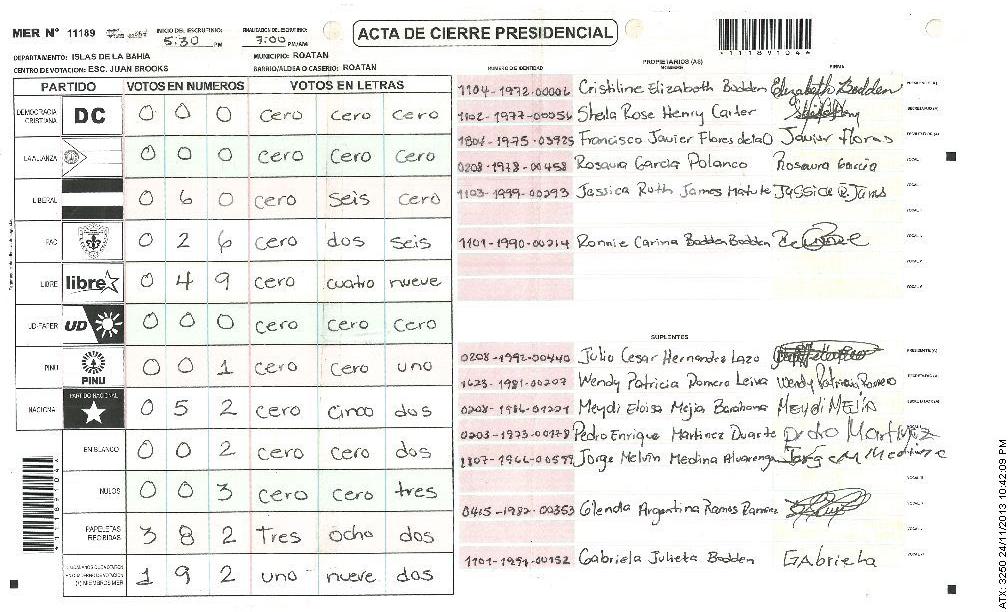 MER Nº 11189 INICIO DEL ESCRUTINIO: 5:30 PM 7:00 PM/AM
ACTA DE CIERRE PRESIDENCIAL
*11189104*
DEPARTAMENTO: ISLAS DE LA BAHIA MUNICIPIO: ROATAN
CENTRO DE VOTACION: ESC. JUAN BROOKS BARRIO/ALDEA O CASERIO: ROATAN
PARTIDO VOTOS EN NUMEROS VOTOS EN LETRAS
DEMOCRACIA CRISTIANA DC 0 0 0 cero cero cero
LA ALIANZA 0 0 0 cero cero cero
LIBERAL 0 6 0 cero seis cero
PAC 0 2 6 cero dos seis
LIBRE libre 0 4 9 cero cuatro nueve
UD-FAPER UD 0 0 0 cero cero cero
PINU PINU 0 0 1 cero cero uno
NACIONAL PARTIDO NACIONAL 0 5 2 cero cinco dos
EN BLANCO 0 0 2 cero cero dos
NULOS 0 0 3 cero cero tres
PAPELETAS RECIBIDAS 3 8 2 Tres ocho dos
1 9 2 uno nueve dos
NUMERO DE IDENTIDAD PROPIETARIOS (AS) NOMBRE FIRMA
1104-1972-00006 Cristiline Elizabeth Bodden Elizabeth Bodden
1102-1977-00056 Shela Rose Henry Carter
1804-1975-03925 Francisco Javier Flores dela O Javier flores
0208-1978-00458 Rosaura Garcia Polanco Rosaura Garcia
1103-1999-00293 Jassica Ruth James Matute
1101-1990-00214 Ronnie Carina Bodden Bodden
SUPLENTES
0208-1992-00440 Julio Cesar Hernandez Lazo
1623-1981-00207 Wendy Patricia Romero Leiva Wendy Patricia Romero
0208-1986-01221 Meydi Eloisa Mejia Barahona MEYDI MEJIA
0203-1973-00178 Pedro Enrique Martinez Duarte Pedro Martinez
1807-1966-00599 Jorge Melvin Medina Alvarenga Jorge M Medina
0415-1982-00353 Glenda Argentina Ramos Ramirez
1101-1991-00152 Gabriela Julieta Bodden GAbriela
ATX: 3250 24/11/2013 10:42:09 PM